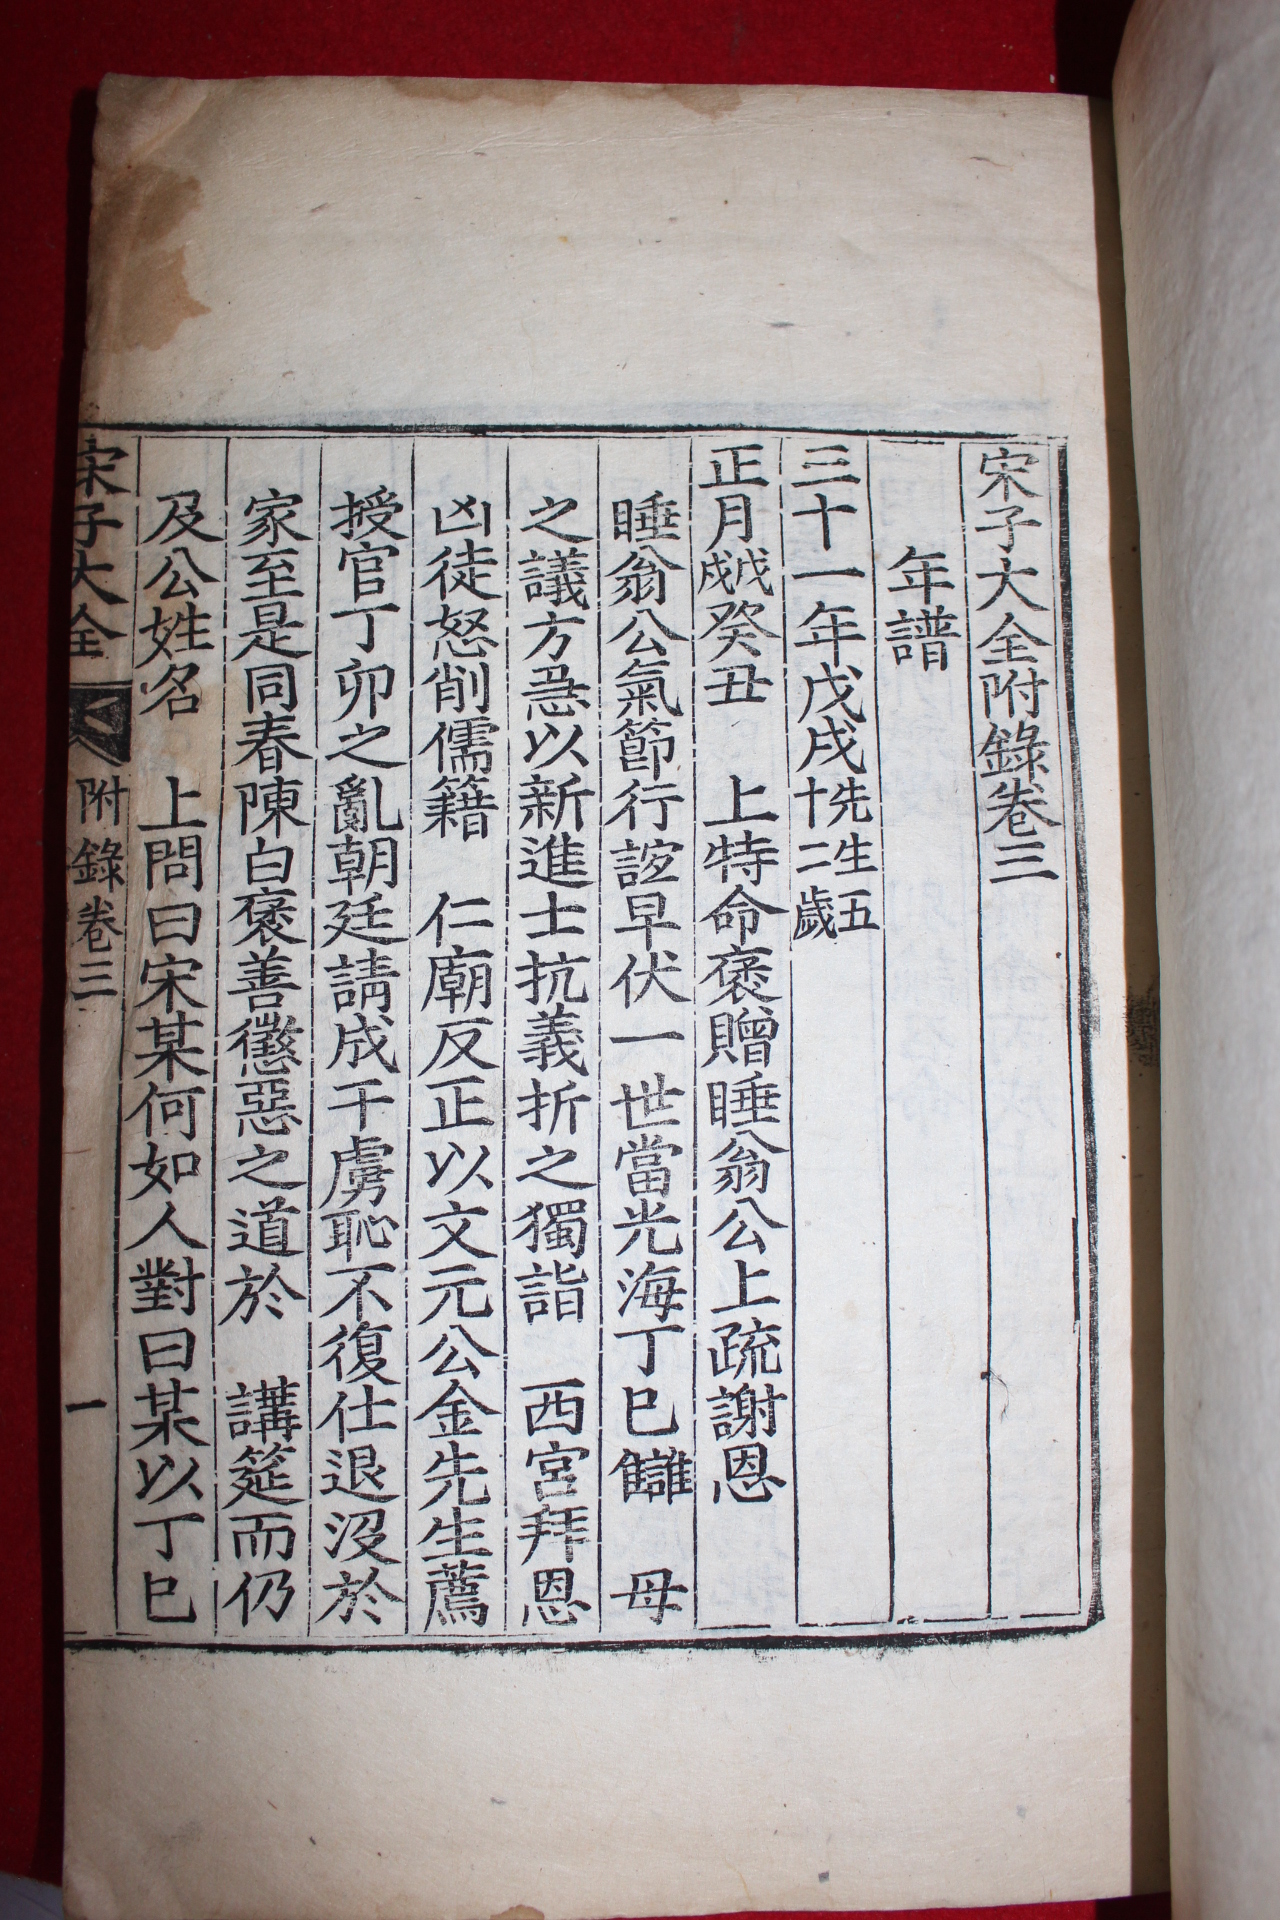 宋子大全附錄卷三
年譜
三十一年戊戌先生五十二歲
正月戊戌癸丑　上特命褒贈睡翁公上疏謝恩
睡翁公氣節行誼早伏一世當光海丁巳讎　母
之議方急以新進士抗義折之獨詣　西宮拜恩
凶徒怒削儒籍　仁廟反正以文元公金先生薦
授官丁卯之亂朝廷請成于虜恥不復仕退沒於
家至是同春陳白褒善懲惡之道於　講筵而仍
及公姓名　上問曰宋某何如人對曰某以丁巳
宋子大全　附錄卷三　一